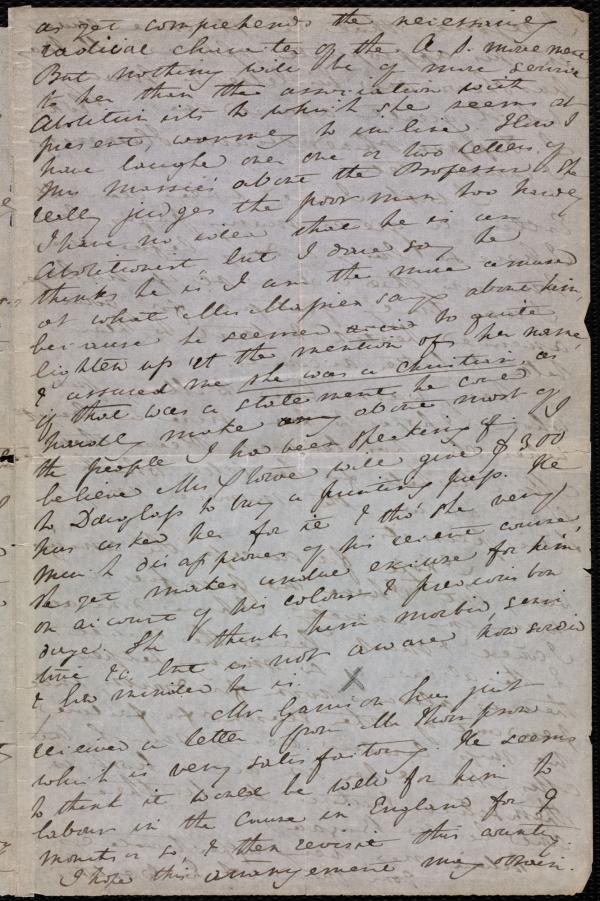 as yet comprehends the necessarily
radical character of the A. S. movement
But nothing will be of more service
to her than the association with
Abolitionists to which she seems at
present, warmly to incline. How I
have laughed over one or two letters of
Mrs Massie's about the Professor. She
really judges the poor man too hardly
I have no idea that he is an
Abolitionist but I dare say he
thinks he is. I am the more amused
at what Mrs Massie says about him,
because he seemed to quite
lighten up at the mention of her name
& assured me she was a Christian, as
if that was a statement he could
hardly make about most of
the people I had been speaking of. I
believe Mrs Stowe will give $300
to Douglass to buy a printing press. He
has asked her for it & tho' she very
much disapproves of his recent course,
she yet makes undue excuse for him
on account of his colour & previous bon
dage. She thinks him morbid, sensi
tive &c but is not aware how sordid
& low minded he is. X
Mr Garrison has just
received a letter from Mr Thompson
which is very satisfactory. He seems
to think it would be well for him to
labour in the cause in England for 9
months or so, & then revisit this country.
I hope this arrangement may obtain.